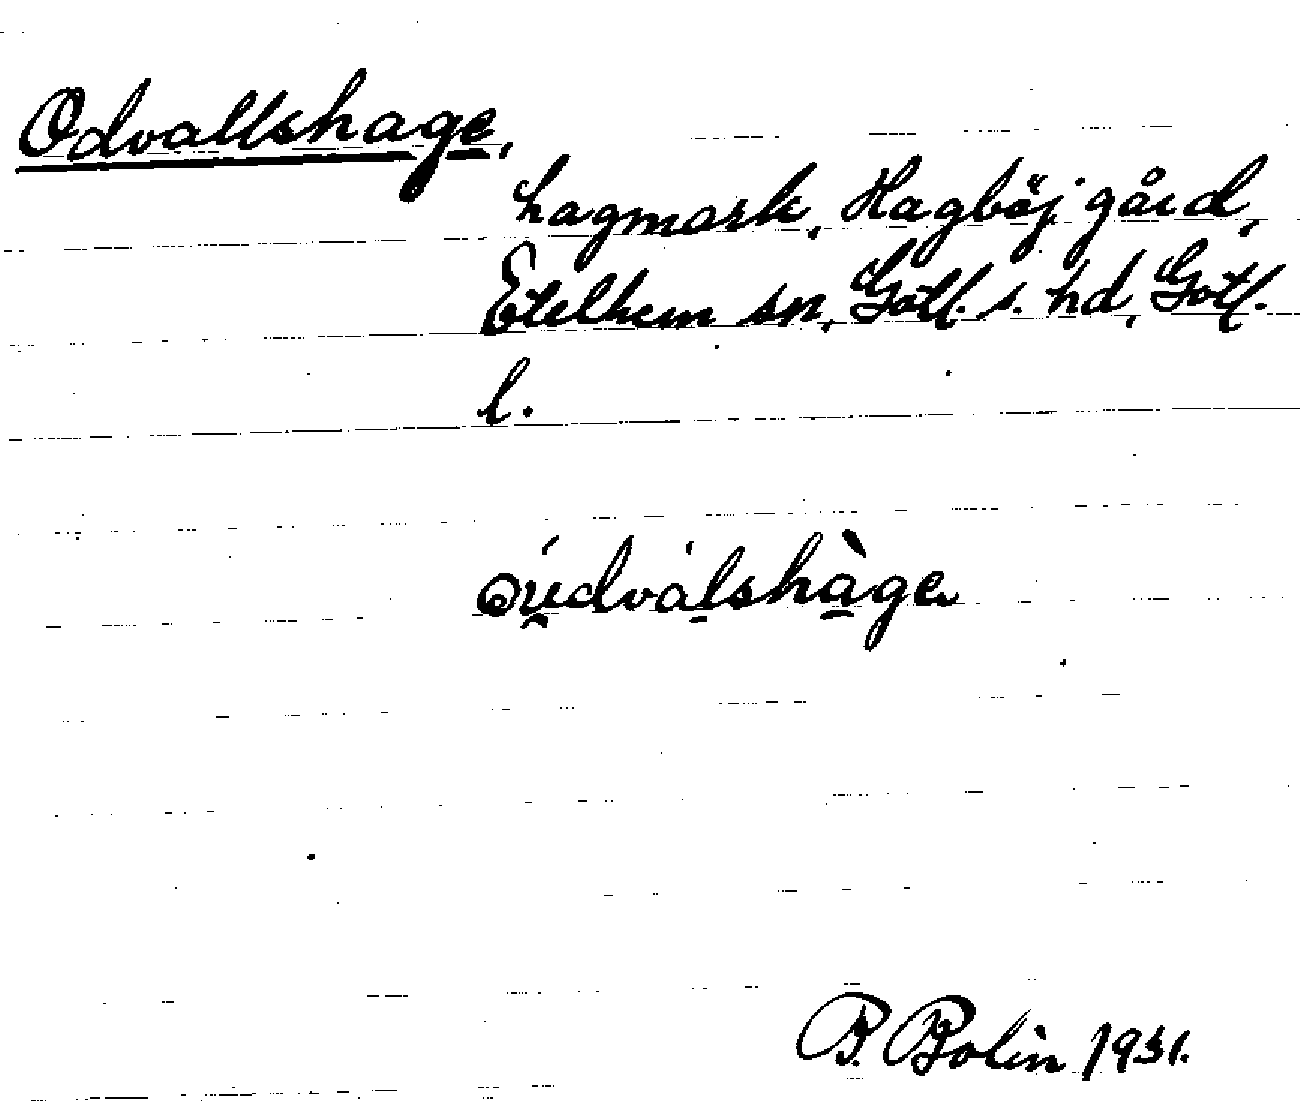 Odvallshage,
hagmark, Hagböj gård,
Etelhem sn, Gotl. s. hd, Gotl.
l.
óu̯dvȧlshàge
B. Bolin 1931.